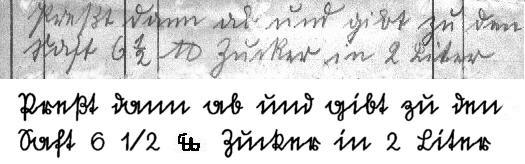 Preßt dann ab und gibt zu den
Saft 6 1/2 ℔ Zucker in 2 Liter
Preßt dann ab und gibt zu den
Saft 6 1/2 ℔ Zucker in 2 Liter